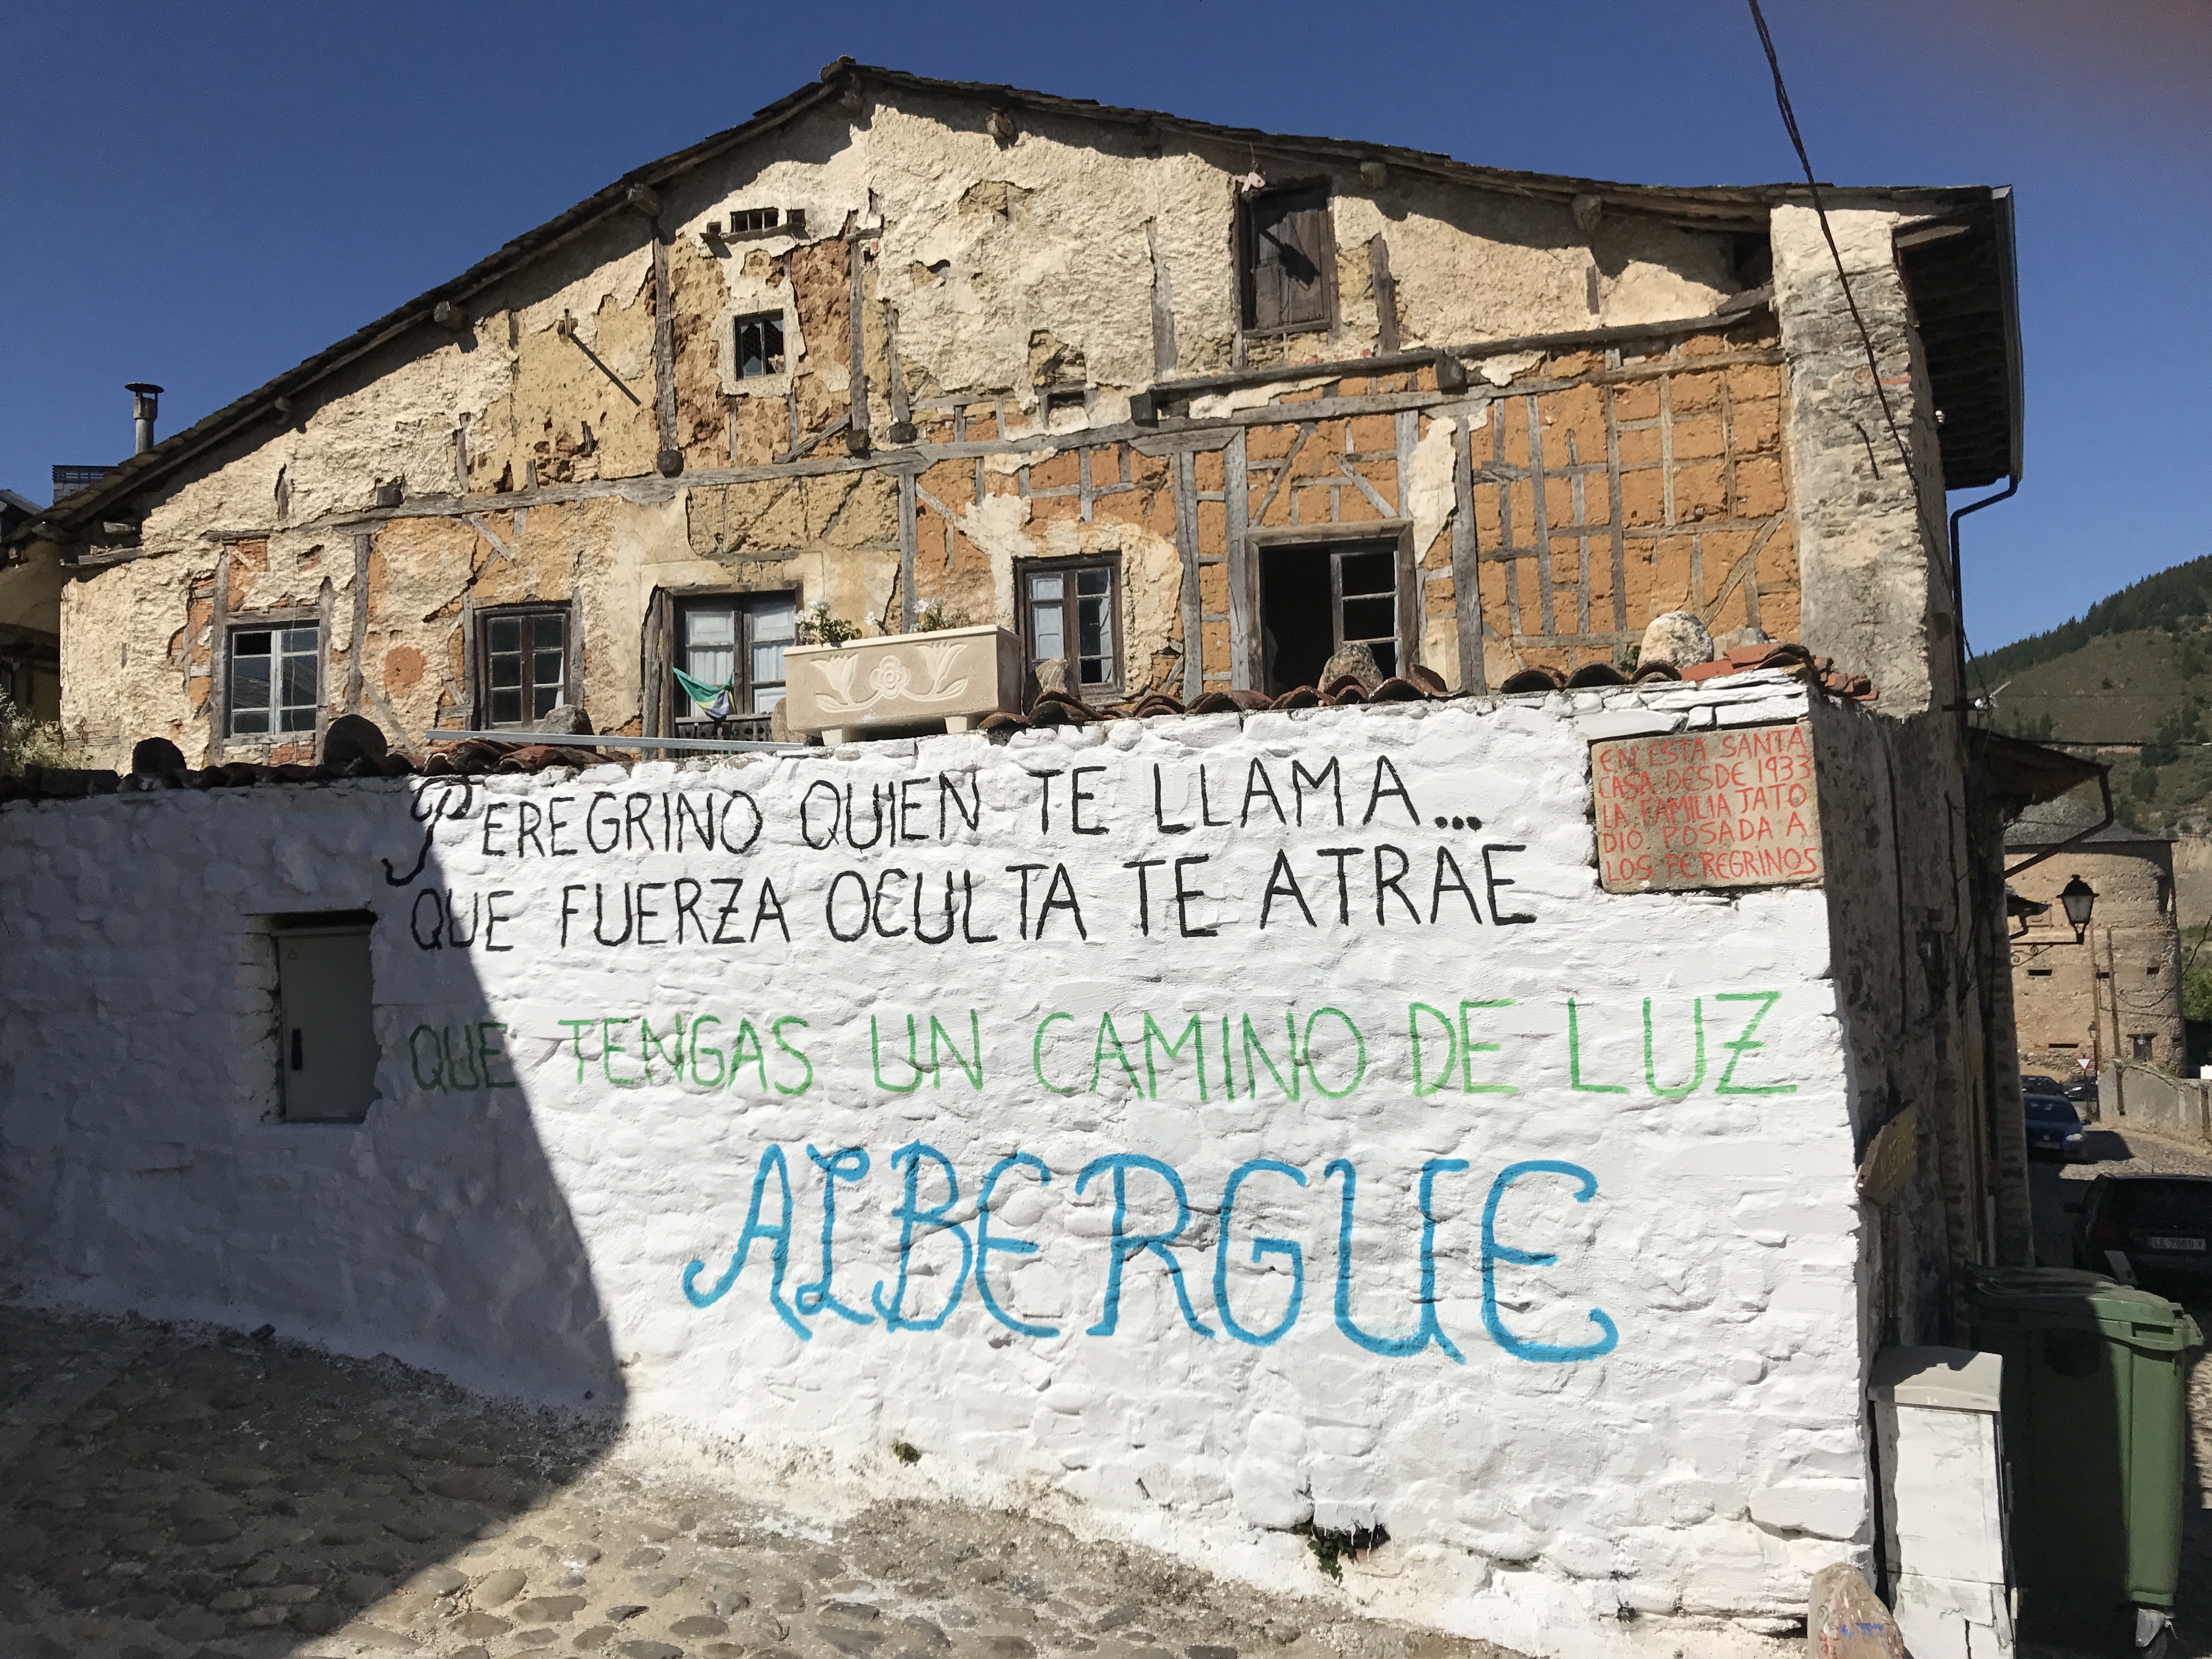 PEREGRINO QUIEN TE LLAMA...
QUE FUERZA OCULTA TE ATRAE
QUE TENGAS UN CAMINO DE LUZ
ALBERGUE
EN ESTA SANTA
CASA DESDE 1933
LA FAMILIA JATO
DIO POSADA A
LOS PEREGRINOS